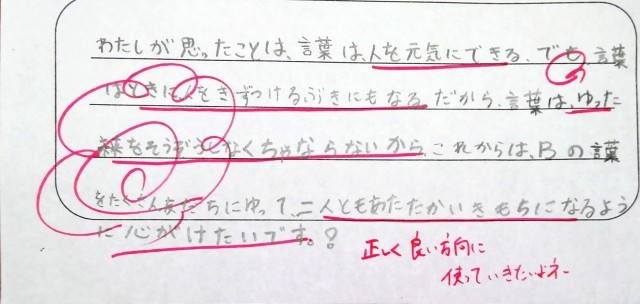 わたしが思ったことは、言葉は、人を元気にできる、でも、言葉
はときに人をきずつけるぶきにもなる。だから、言葉は、ゆった
結末をそうぞうしなくちゃならないから、これからは、Bの言葉
をたくさん友だちにゆって、二人ともあたたかいきもちになるよう
に心がけたいです。
正しく良い方向に
使っていきたいよネー